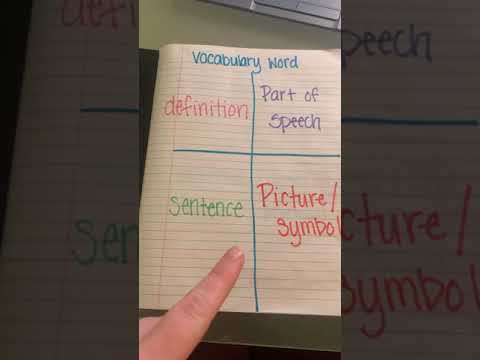 Vocabulary Word
definition
Part of
Speech
Sentence
Picture/
Symbol